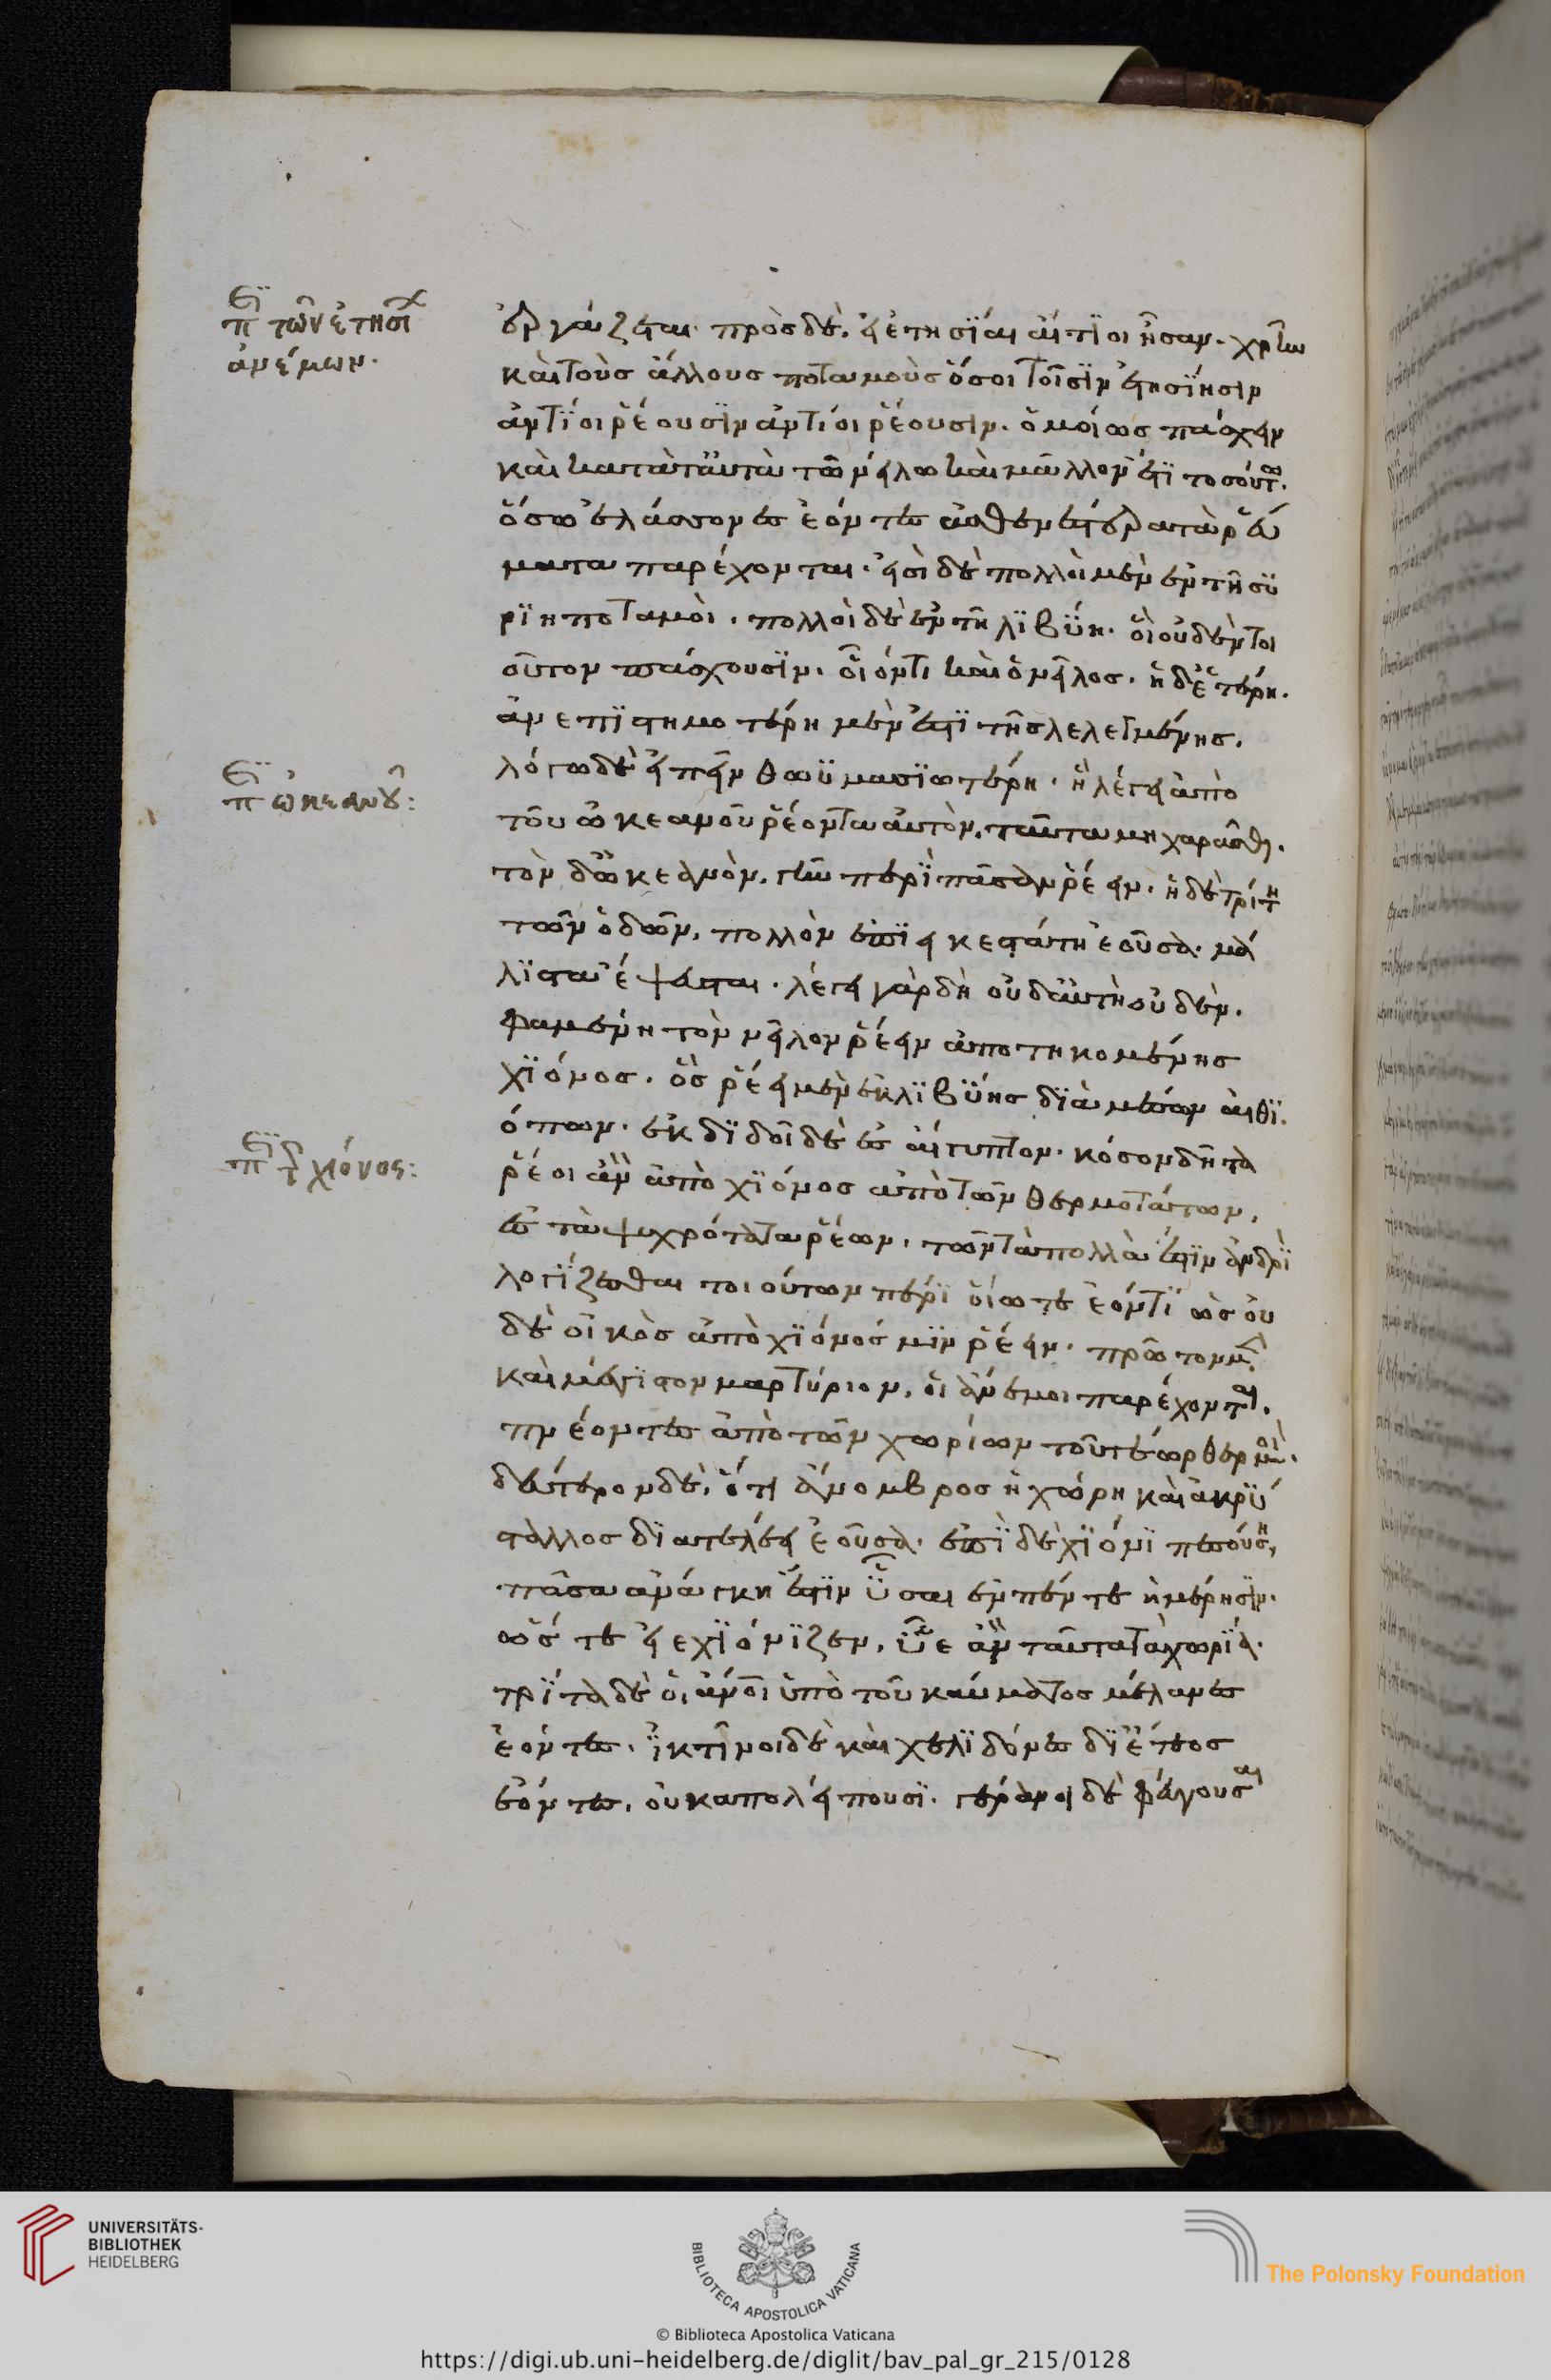 περὶ τῶν ἐτησί
ἀνέμων.
ἐργάζεται. πρὸς δὲ, εἰ ἐτησίαι αἴτιοι ἦσαν. χρῆν
καὶ τοὺς ἄλλους ποταμοὺς ὅσοι τοῖσιν ἐτησίησιν
ἀντίοι ῥέουσιν ἀντίοι ῥέουσιν. ὁμοίως πάσχειν
καὶ κατὰ ταὐτὰ τῶ νείλω καὶ μᾶλλον ἔτι τοσούτω.
ὅσω ἐλάσσονες ἐόντες ἀσθενέστερα τὰ ῥεύ
ματα παρέχονται. εἰσὶ δὲ πολλοὶ μὲν ἐν τῆ συ
ρίη ποταμοὶ. πολλοὶ δὲ ἐν τῆ λιβύη. οἳ οὐδὲν τοι
οῦτον πάσχουσιν. οἷόν τι καὶ ὁ νεῖλος. ἡ δ' ἑτέρη.
ἀνεπιστημοτέρη μέν ἐστι τῆς λελεγμένης.
περὶ ὠκεανοῦ:
λόγω δὲ εἰπεῖν θωϋμασιωτέρη. ἣ λέγει ἀπὸ
τοῦ ὠκεανοῦ ῥέοντα αὐτὸν. ταῦτα μηχανᾶσθαι.
τὸν δ' ὠκεανὸν. γῆν περὶ πᾶσαν ῥέειν. ἡ δὲ τρίτη
τῶν ὁδῶν. πολλὸν ἐπιεικεστάτη ἐοῦσα. μά
λιστα ἔψευσται. λέγει γὰρ δὴ οὐδ' αὕτη οὐδὲν.
φαμένη τὸν νεῖλον ῥέειν ἀπὸ τηκομένης
χιόνος. ὃς ῥέει μὲν ἐκ λιβύης διὰ μέσων αἰθι
όπων. ἐκδιδοῖ δὲ ἐς αἴγυπτον. κόσον δῆτα
περὶ τῆς χιόνος:
ῥέοι ἂν ἀπὸ χιόνος ἀπὸ τῶν θερμοτάτων.
ἐς τὰ ψυχρότατα ῥέων. τῶν τὰ πολλά ἐστιν ἀνδρὶ
λογίζεσθαι τοιούτων πέρι οἵω τε ἐόντι ὡς οὐ
δὲ οἰκὸς ἀπὸ χιόνος μιν ῥέειν. πρῶτον μὲν
καὶ μέγιστον μαρτύριον. οἱ ἄνεμοι παρέχονται.
πνέοντες ἀπὸ τῶν χωρίων τουτέων θερμοὶ.
δεύτερον δὲ. ὅτι ἄνομβρος ἡ χώρη καὶ ἀκρύ
σταλλος διατελέει ἐοῦσα. ἐπὶ δὲ χιόνι πεσούση,
πᾶσα ἀνάγκη ἐστὶν ὗσαι ἐν πέντε ἡμέρησιν.
ὥστε εἰ ἐχιόνιζεν. ὗε ἂν ταῦτα τὰ χωρία.
τρίτα δὲ οἱ ἄνοι ὑπὸ τοῦ καύματος μέλανες
ἐόντες. ἰκτῖνοι δὲ καὶ χελιδόνες δι' ἔτεος
ἐόντες. οὐκ ἀπολείπουσι. γέρανοι δὲ φεύγουσαι
UNIVERSITÄTS-
BIBLIOTHEK
HEIDELBERG
BIBLIOTECA APOSTOLICA VATICANA
The Polonsky Foundation
© Biblioteca Apostolica Vaticana
https://digi.ub.uni-heidelberg.de/diglit/bav_pal_gr_215/0128